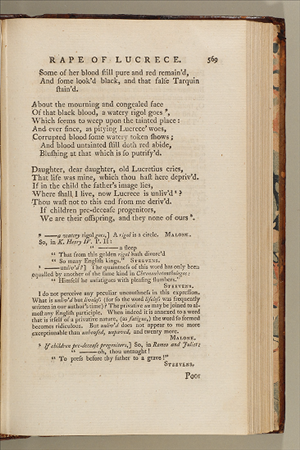 RAPE OF LUCRECE. 569
Some of her blood ſtill pure and red remain'd,
And ſome look'd black, and that falſe Tarquin
ſtain'd.
About the mourning and congealed face
Of that black blood, a watery rigol goes ⁹,
Which ſeems to weep upon the tainted place:
And ever ſince, as pitying Lucrece' woes,
Corrupted blood ſome watery token ſhows;
And blood untainted ſtill doth red abide,
Bluſhing at that which is ſo putrify'd.
Daughter, dear daughter, old Lucretius cries,
That life was mine, which thou haſt here depriv'd.
If in the child the father's image lies,
Where ſhall I live, now Lucrece is unliv'd ¹?
Thou waſt not to this end from me deriv'd.
If children pre-deceaſe progenitors,
We are their offſpring, and they none of ours ².
⁹ —a watery rigol goes,] A rigol is a circle. MALONE.
So, in K. Henry IV. P. II:
" ——— a ſleep
" That from this golden rigol hath divorc'd
" So many Engliſh kings." STEEVENS.
¹ —— unliv'd?] The quaintneſs of this word has only been
equalled by another of the ſame kind in
" Himſelf he unfatigues with pleaſing ſlumbers."
STEEVENS.
I do not perceive any peculiar uncouthneſs in this expreſſion.
What is unliv'd but liveleſs (for ſo the word lifeleſs was frequently
written in our author's time)? The privative un may be joined to al-
moſt any Engliſh participle. When indeed it is annexed to a word
that is itſelf of a privative nature, (as fatigue,) the word ſo formed
becomes ridiculous. But unliv'd does not appear to me more
exceptionable than unſhaped, and twenty more.
MALONE.
² If children pre-deceaſe progenitors,] So, in Romeo and Juliet:
" —— oh, thou untaught!
" To preſs before thy father to a grave!"
STEEVENS.
Poor